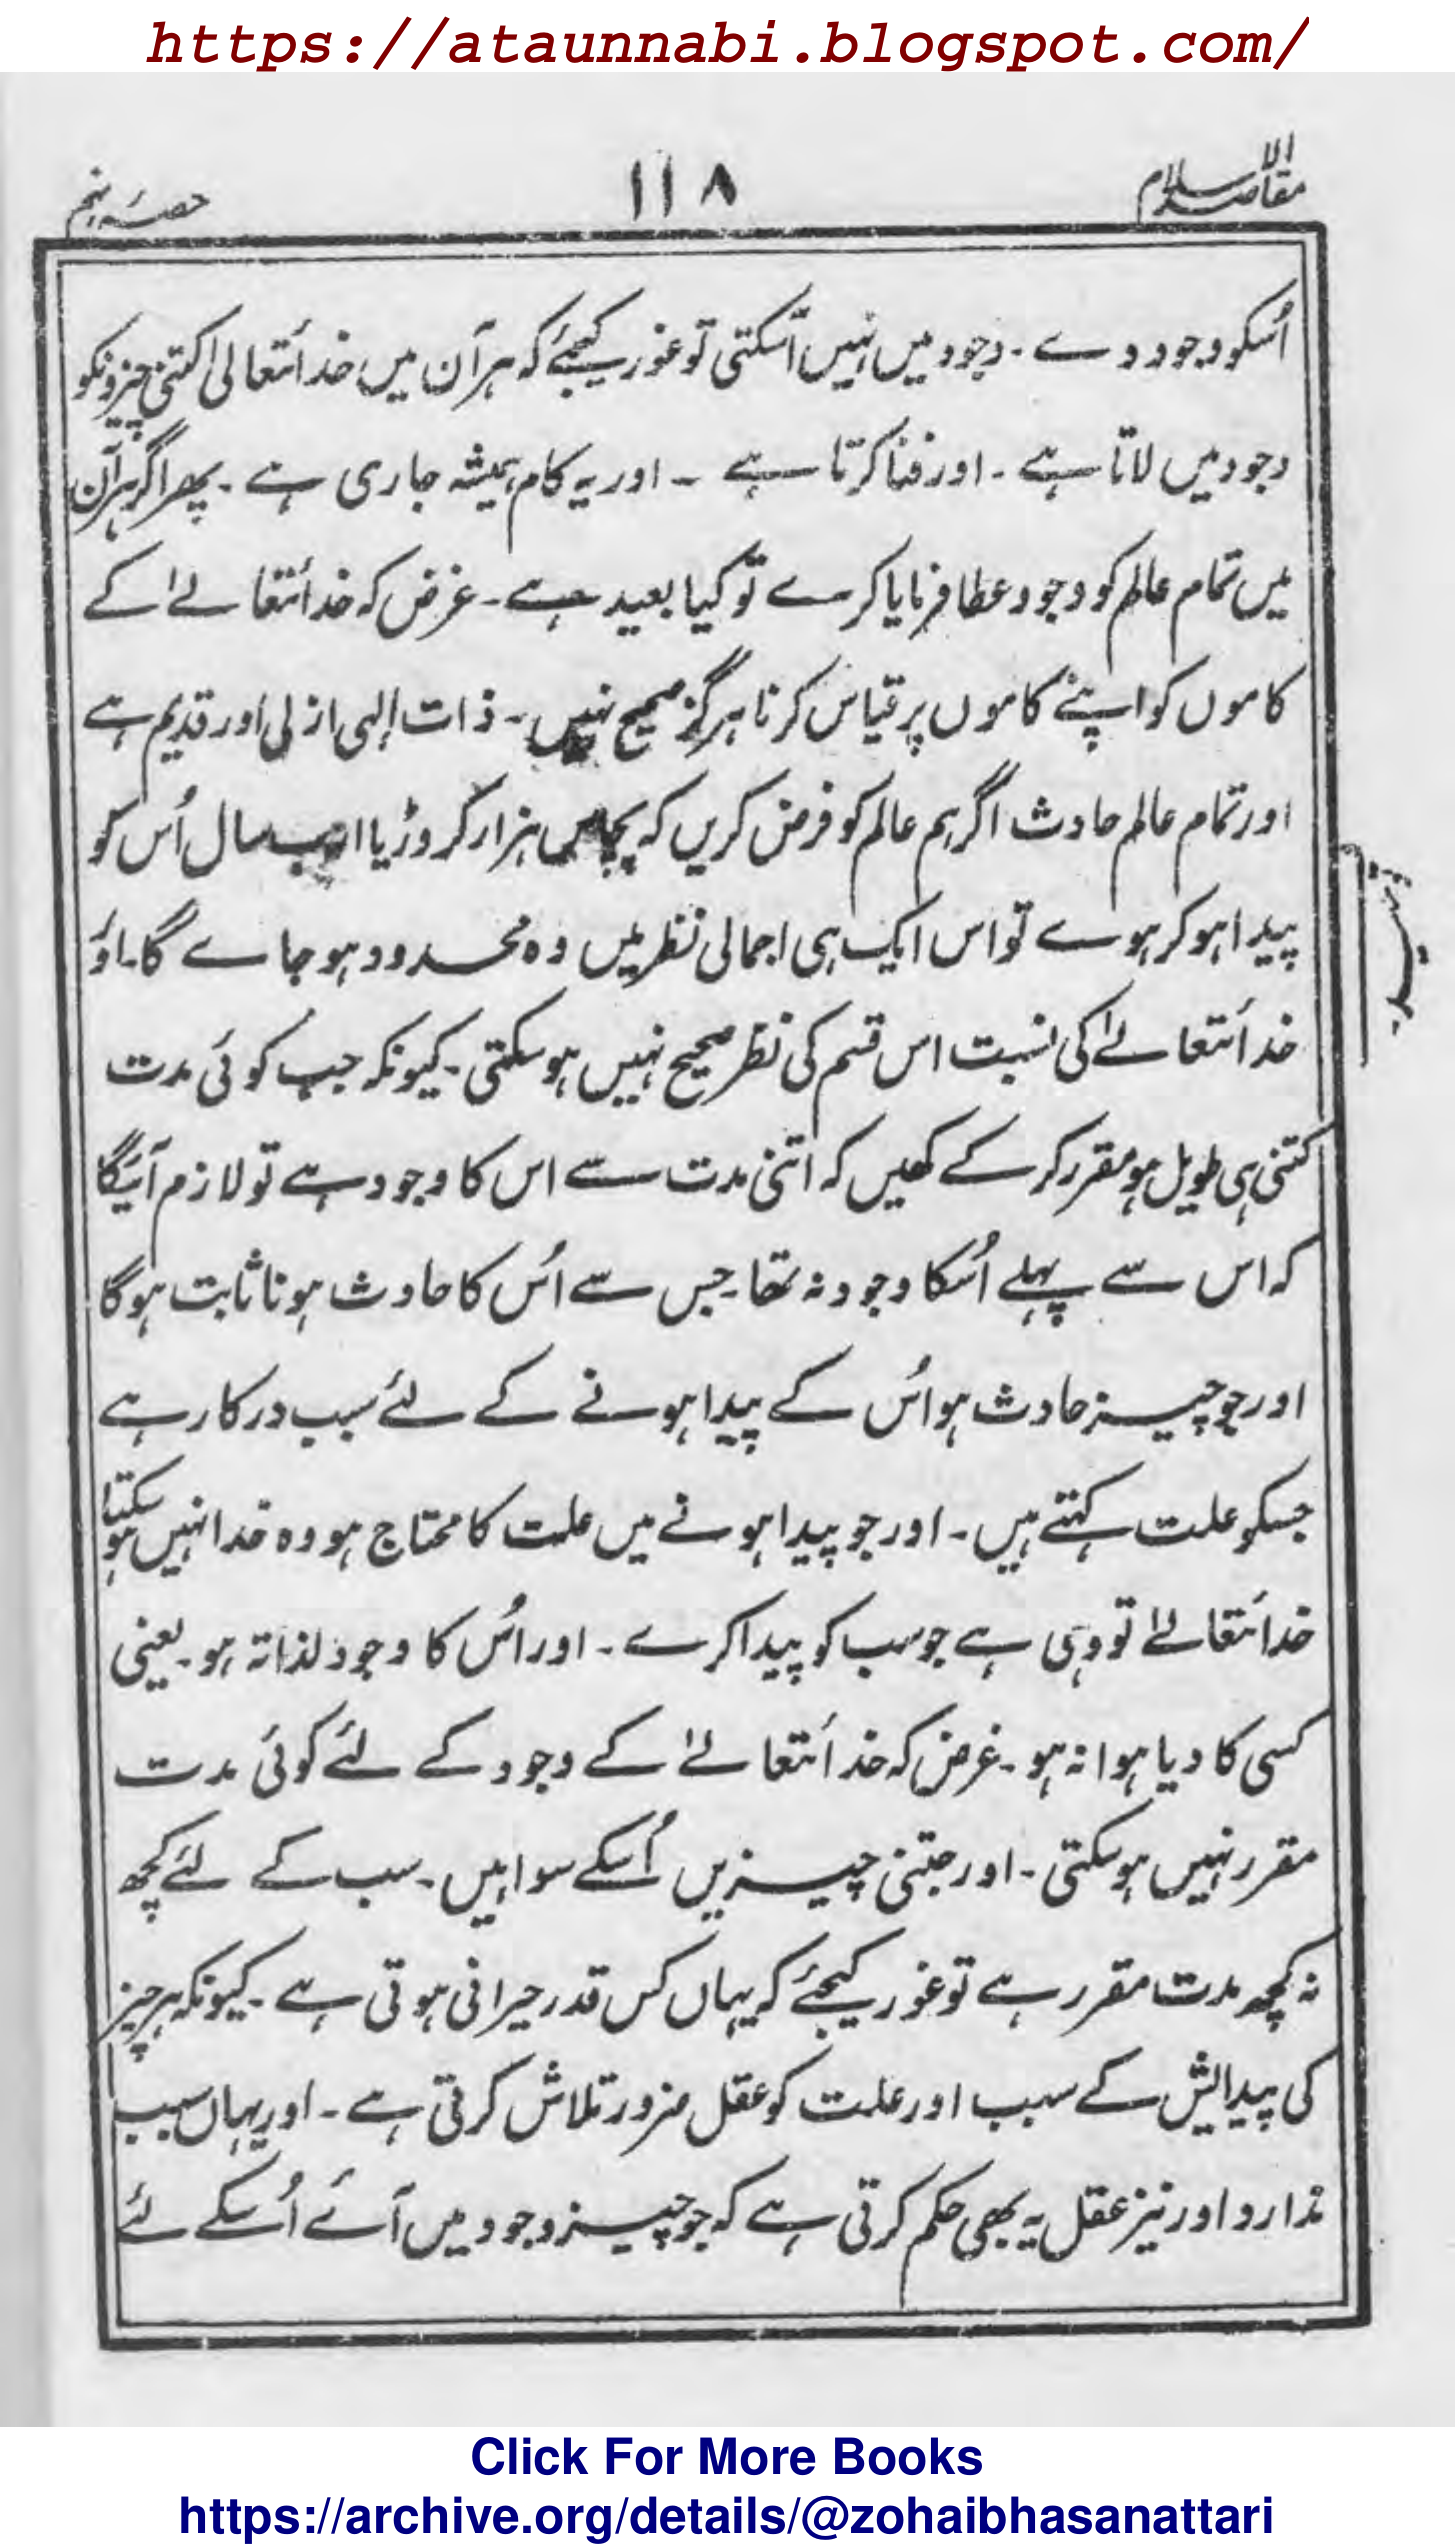 https://ataunnabi.blogspot.com/
مقاصد الاسلام
۱۱۸
حصۂ پنجم
اُسکو وجود دے ۔ وجود میں نہیں آسکتی تو غور کیجئے کہ ہر آن میں خدا ئتعالیٰ کتنی چیزونکو
وجود میں لاتا ہے ۔ اور فنا کرتا ہے ۔ اور یہ کام ہمیشہ جاری ہے ۔ پھر اگر ہر آن
میں تمام عالم کو وجود عطا فرمایا کرے تو کیا بعید ہے ۔ غرض کہ خدا ئتعالےٰ کے
کاموں کو اپنے کاموں پر قیاس کرنا ہرگز صحیح نہیں ۔ ذات الٰہی ازلی اور قدیم ہے
اور تمام عالم حادث اگر ہم عالم کو فرض کریں کہ پچاس ہزار کروڑ یا ارب سال اُس کو
پیدا ہو کر ہوے تو اس ایک ہی اجمالی نظر میں وہ محدود ہو جاے گا ۔ اور
خدا ئتعالےٰ کی نسبت اس قسم کی نظر صحیح نہیں ہوسکتی ۔ کیونکہ جب کوئی مدت
کتنی ہی طویل ہو مقرر کر کے کھیں کہ اتنی مدت سے اس کا وجود ہے تو لازم آئیگا
کہ اس سے پہلے اُسکا وجود نہ تھا ۔ جس سے اُس کا حادث ہونا ثابت ہوگا
اور جو چیز حادث ہو اُس کے پیدا ہونے کے لئے سبب درکار ہے
جسکو علت کہتے ہیں ۔ اور جو پیدا ہونے میں علت کا محتاج ہو وہ خدا نہیں ہو سکتا
خدا ئتعالےٰ تو وہی ہے جو سب کو پیدا کرے ۔ اور اُس کا وجود لذاتہ ہو ۔ یعنی
کسی کا دیا ہوا نہ ہو ۔ غرض کہ خدا ئتعالےٰ کے وجود کے لئے کوئی مدت
مقرر نہیں ہوسکتی ۔ اور جتنی چیزیں اُسکے سوا ہیں ۔ سب کے لئے کچھ
نہ کچھ مدت مقرر ہے تو غور کیجئے کہ یہاں کس قدر حیرانی ہوتی ہے ۔ کیونکہ ہر چیز
کی پیدائش کے سبب اور علت کو عقل ضرور تلاش کرتی ہے ۔ اور یہاں سبب
ندارد اور نیز عقل یہ بھی حکم کرتی ہے کہ جو چیز وجود میں آئے اُسکے لئے
Click For More Books
https://archive.org/details/@zohaibhasanattari